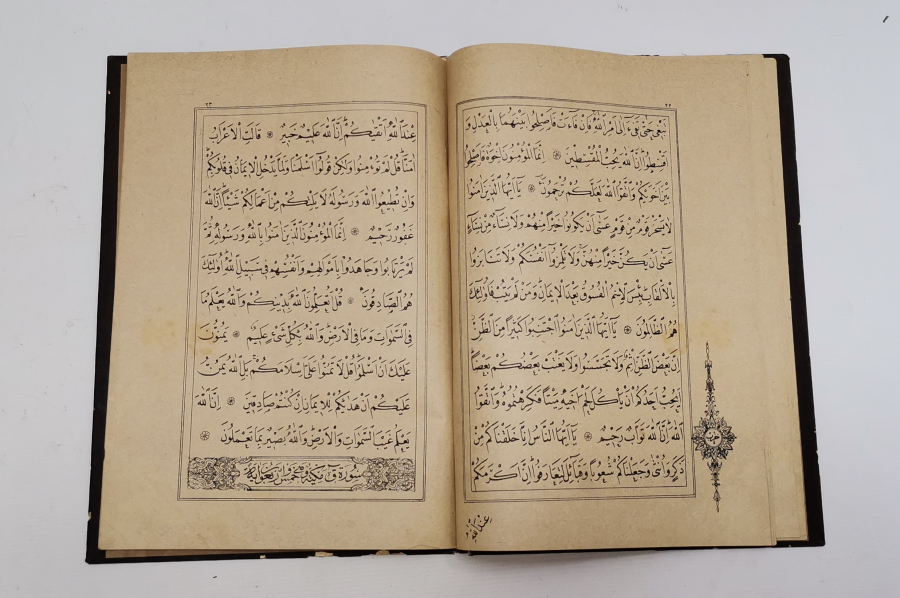 ٢٢
تَبْغٖى حَتّٰى تَفٖٓىءَ اِلٰٓى اَمْرِ اللّٰهِ فَاِنْ فَٓاءَتْ فَاَصْلِحُوا بَيْنَهُمَا بِالْعَدْلِ وَ
اَقْسِطُوا اِنَّ اللّٰهَ يُحِبُّ الْمُقْسِطٖينَ ۞ اِنَّمَا الْمُؤْمِنُونَ اِخْوَةٌ فَاَصْلِحُوا
بَيْنَ اَخَوَيْكُمْ وَاتَّقُوا اللّٰهَ لَعَلَّكُمْ تُرْحَمُونَ ۞ يَٓا اَيُّهَا الَّذٖينَ اٰمَنُوا
لَا يَسْخَرْ قَوْمٌ مِنْ قَوْمٍ عَسٰٓى اَنْ يَكُونُوا خَيْرًا مِنْهُمْ وَلَا نِسَٓاءٌ مِنْ نِسَٓاءٍ
عَسٰٓى اَنْ يَكُنَّ خَيْرًا مِنْهُنَّ وَلَا تَلْمِزُٓوا اَنْفُسَكُمْ وَلَا تَنَابَزُوا
بِالْاَلْقَابِ بِئْسَ الْاِسْمُ الْفُسُوقُ بَعْدَ الْاٖيمَانِ وَمَنْ لَمْ يَتُبْ فَاُولٰٓئِكَ
هُمُ الظَّالِمُونَ ۞ يَٓا اَيُّهَا الَّذٖينَ اٰمَنُوا اجْتَنِبُوا كَثٖيرًا مِنَ الظَّنِّ
اِنَّ بَعْضَ الظَّنِّ اِثْمٌ وَلَا تَجَسَّسُوا وَلَا يَغْتَبْ بَعْضُكُمْ بَعْضًا
اَيُحِبُّ اَحَدُكُمْ اَنْ يَاْكُلَ لَحْمَ اَخٖيهِ مَيْتًا فَكَرِهْتُمُوهُ وَاتَّقُوا
اللّٰهَ اِنَّ اللّٰهَ تَوَّابٌ رَحٖيمٌ ۞ يَٓا اَيُّهَا النَّاسُ اِنَّا خَلَقْنَاكُمْ مِنْ
ذَكَرٍ وَاُنْثٰى وَجَعَلْنَاكُمْ شُعُوبًا وَقَبَٓائِلَ لِتَعَارَفُوا اِنَّ اَكْرَمَكُمْ
عِنْدَ اللّٰهِ
٢٣
عِنْدَ اللّٰهِ اَتْقٰيكُمْ اِنَّ اللّٰهَ عَلٖيمٌ خَبٖيرٌ ۞ قَالَتِ الْاَعْرَابُ
اٰمَنَّا قُلْ لَمْ تُؤْمِنُوا وَلٰكِنْ قُولُٓوا اَسْلَمْنَا وَلَمَّا يَدْخُلِ الْاٖيمَانُ فٖى قُلُوبِكُمْ
وَاِنْ تُطٖيعُوا اللّٰهَ وَرَسُولَهُ لَا يَلِتْكُمْ مِنْ اَعْمَالِكُمْ شَيْـًٔا اِنَّ اللّٰهَ
غَفُورٌ رَحٖيمٌ ۞ اِنَّمَا الْمُؤْمِنُونَ الَّذٖينَ اٰمَنُوا بِاللّٰهِ وَرَسُولِهٖ ثُمَّ
لَمْ يَرْتَابُوا وَجَاهَدُوا بِاَمْوَالِهِمْ وَاَنْفُسِهِمْ فٖى سَبٖيلِ اللّٰهِ اُولٰٓئِكَ
هُمُ الصَّادِقُونَ ۞ قُلْ اَتُعَلِّمُونَ اللّٰهَ بِدٖينِكُمْ وَاللّٰهُ يَعْلَمُ مَا
فِى السَّمٰوَاتِ وَمَا فِى الْاَرْضِ وَاللّٰهُ بِكُلِّ شَىْءٍ عَلٖيمٌ ۞ يَمُنُّونَ
عَلَيْكَ اَنْ اَسْلَمُوا قُلْ لَا تَمُنُّوا عَلَىَّ اِسْلَامَكُمْ بَلِ اللّٰهُ يَمُنُّ
عَلَيْكُمْ اَنْ هَدٰيكُمْ لِلْاٖيمَانِ اِنْ كُنْتُمْ صَادِقٖينَ ۞ اِنَّ اللّٰهَ
يَعْلَمُ غَيْبَ السَّمٰوَاتِ وَالْاَرْضِ وَاللّٰهُ بَصٖيرٌ بِمَا تَعْمَلُونَ ۞
سورة ق مكية وهى خمس واربعون اية